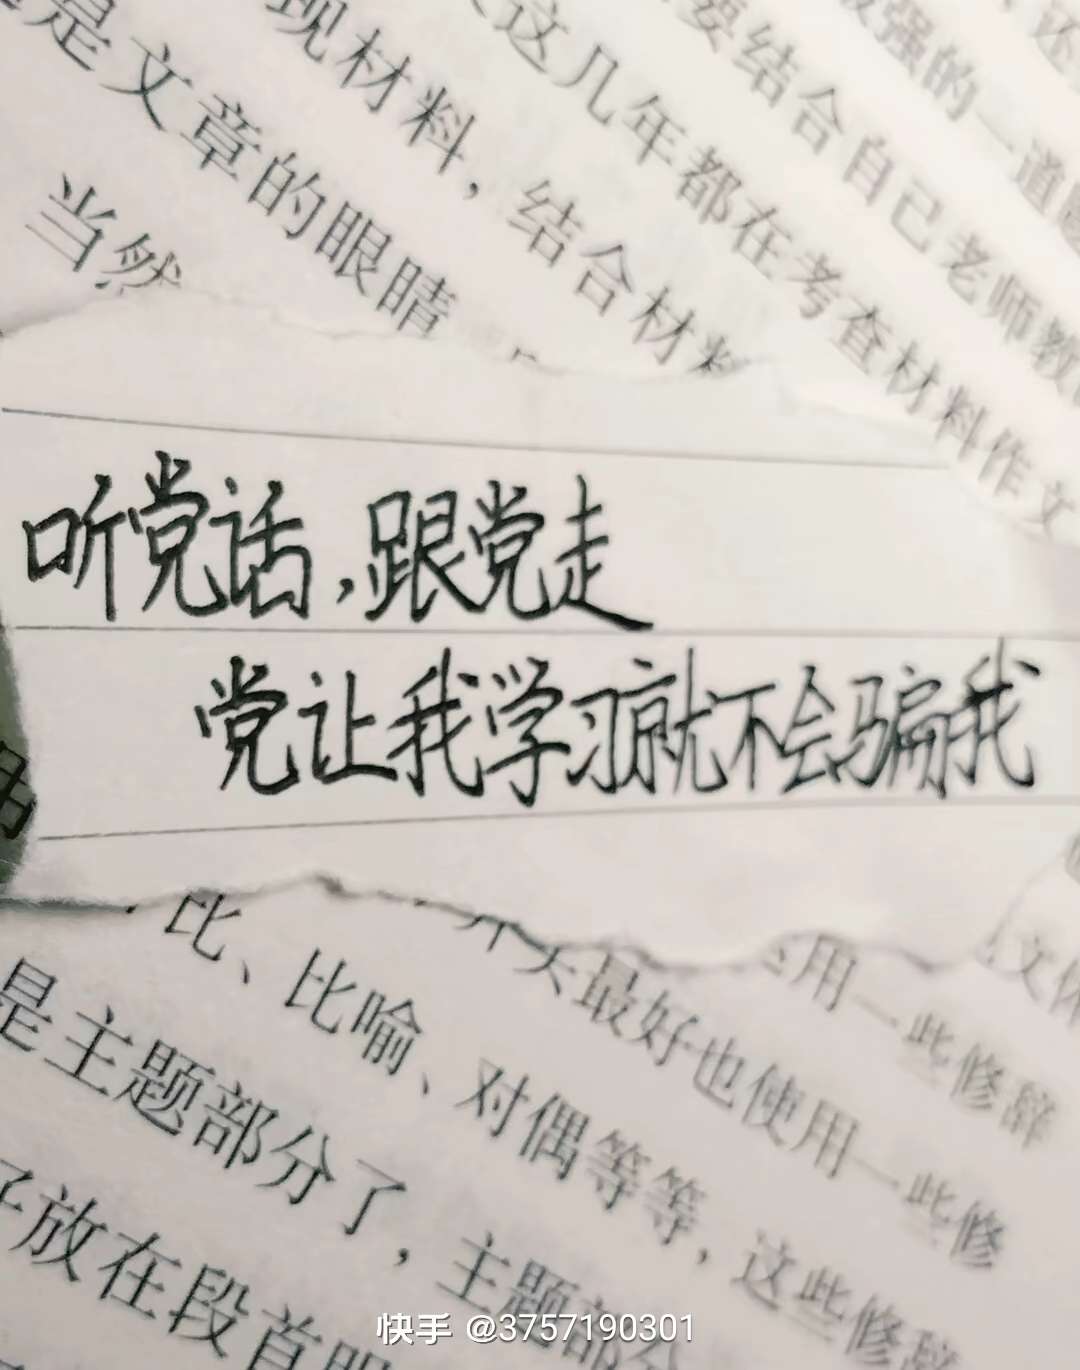 还
最强的一道题
要结合自己老师教
这几年都在考查材料作文
现材料，结合材料
是文章的眼睛
当然
听党话，跟党走
党让我学习就不会骗我
比、比喻、对偶等等，这些修辞
开头最好也使用一些修
用一些修辞
文体
是主题部分了，主题部分
放在段首眼
快手 @3757190301